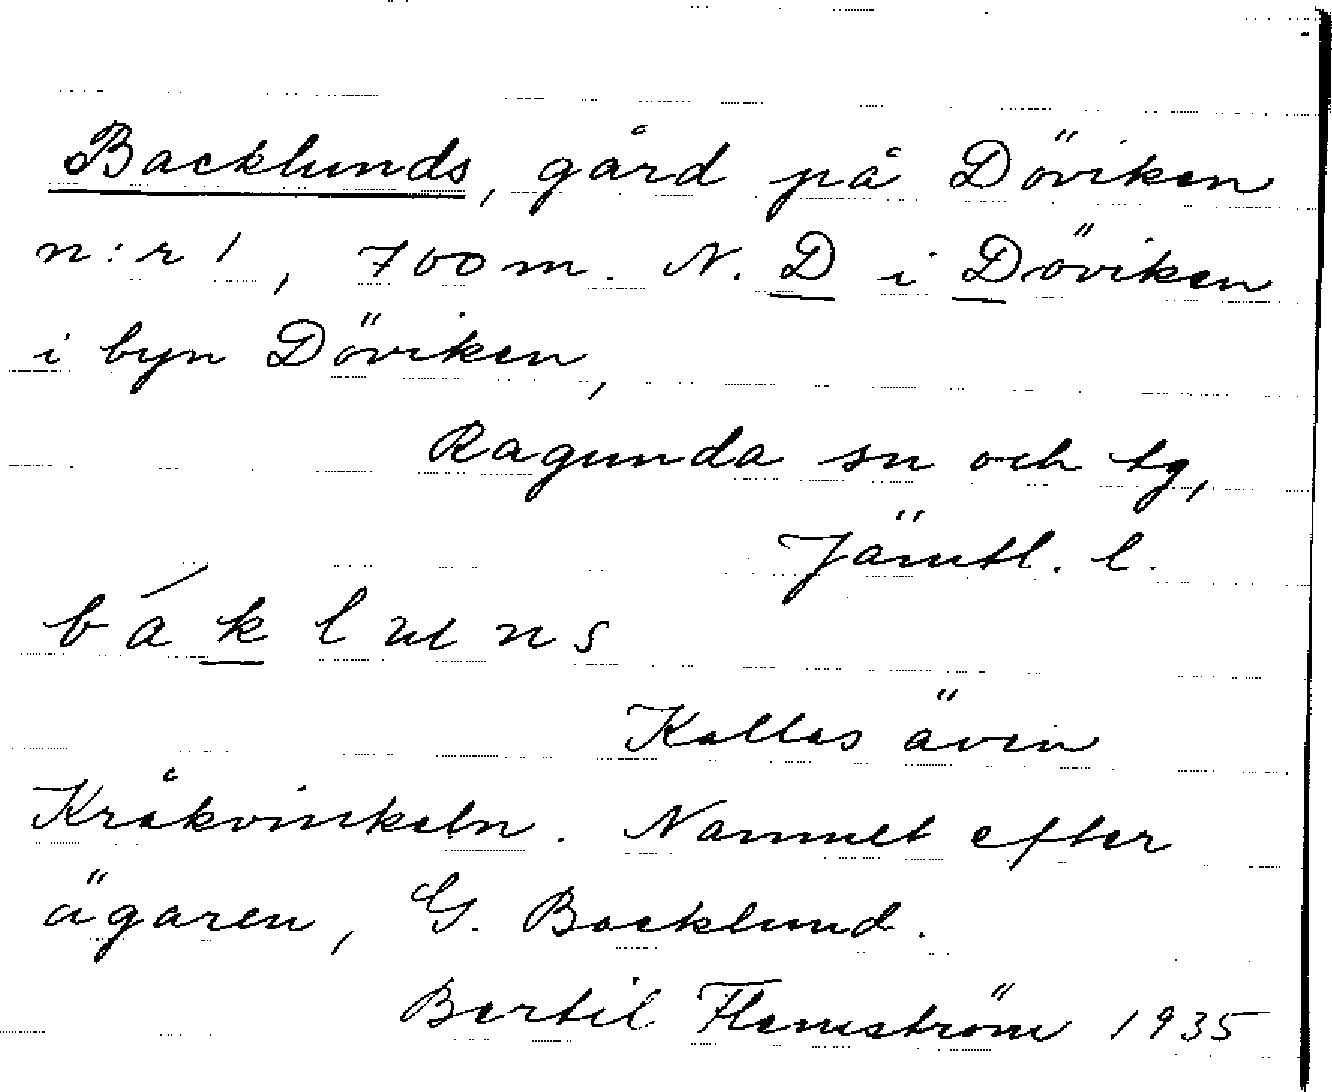 Backlunds, gård på Döviken
n:r 1, 700 m. N. D i Döviken
i byn Döviken,
Ragunda sn och tg,
Jämtl. l.
bák luns
Kallas även
Kråkvinkeln. Namnet efter
ägaren, G. Backlund.
Bertil Flemström 1935